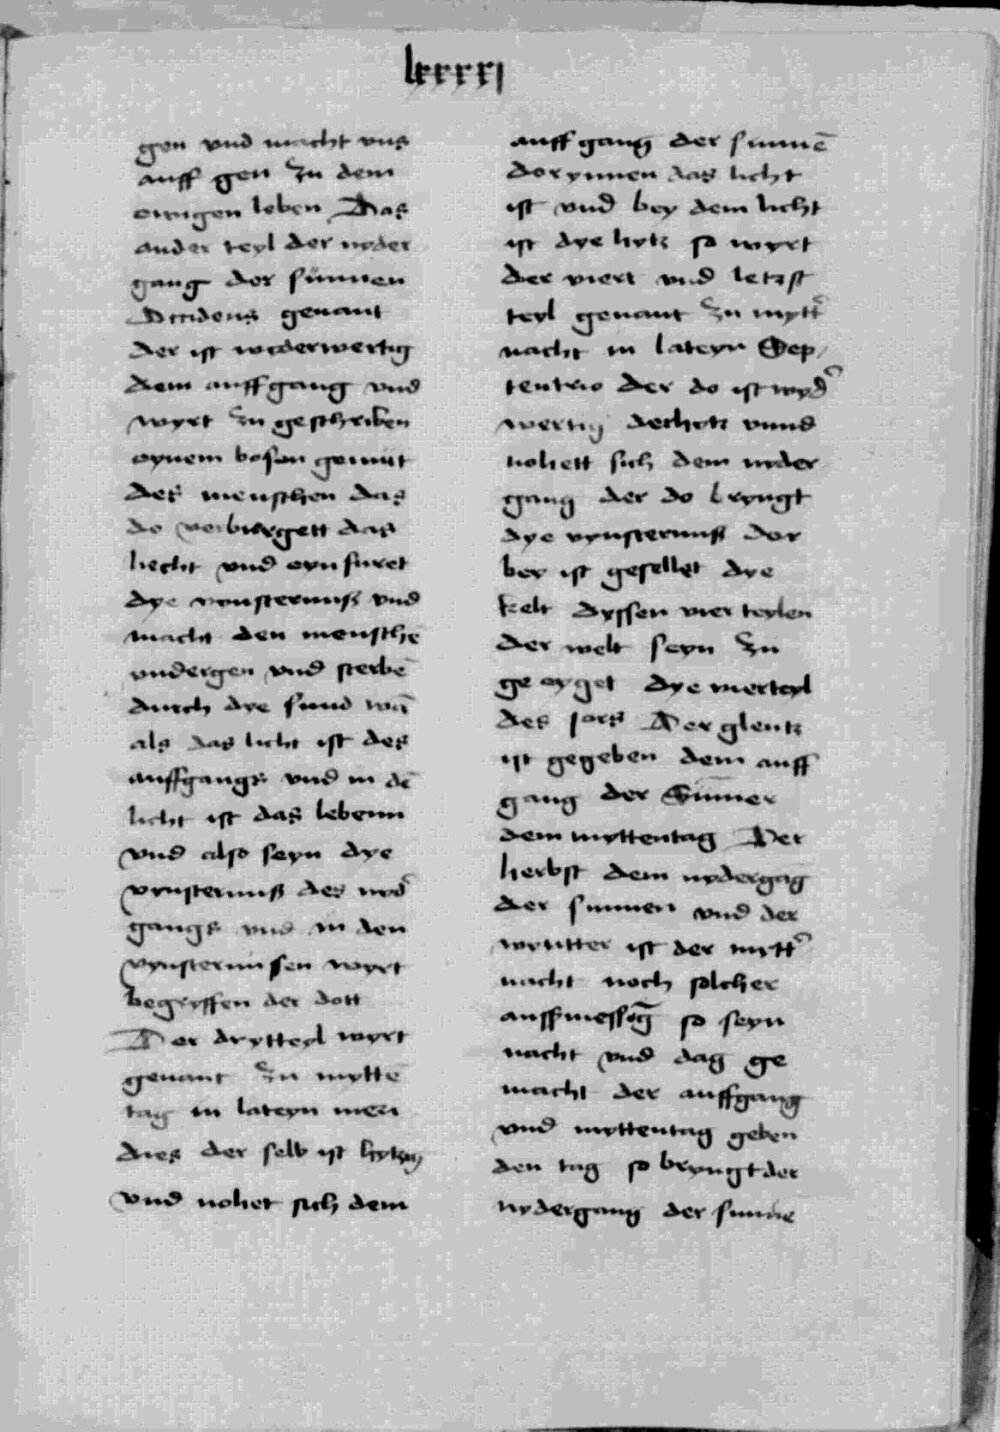 lxxxxj
gen vnd macht vns
auff gen zu dem
ewigen leben Das
ander teyl der nyder
gang der sünnen
Occidens genant
der ist wyderwertig
dem auffgang vnd
wyrt zu geschriben
eynem bosen gemüt
des menschen das
do verbirgett das
liecht vnd eynfuret
dye vynsternuß vnd
macht den menschē
vndergen vnd sterbē
durch dye sund wā
als das licht ist des
auffgangs vnd in dē
licht ist das lebenn
vnd also seyn dye
vynsternuß des nyd̕
gangs vnd in den
vynsternüssen wyrt
begryffen der dott
Der drytteyl wyrt
genant zu myttē
tag in lateyn meri
dies der selb ist hytzig
vnd nohet sich dem
auffgang der sunnē
dorynnen das licht
ist vnd bey dem licht
ist dye hytz so wyrt
der viert vnd letzst
teyl genant zu mytt̕
nacht in lateyn Sep/
tentrio der do ist wyd̕
wertig der hytz vnnd
nohett sich dem nyder
gang der do bryngt
dye vynsternuß dor
bey ist gesellet dye
kelt dyssen vier teylen
der welt seyn zu
ge eyget dye vier teyl
des jors Der glentz
ist gegeben dem auff
gang der Sümer
dem myttentag Der
herbst dem nydergāg
der sunnen vnd der
wyntter ist der mytt̕
nacht noch solcher
auffmessūg so seyn
nacht vnd dag ge
macht der auffgang
vnd myttentag geben
den tag so bryngt der
nydergang der sunne